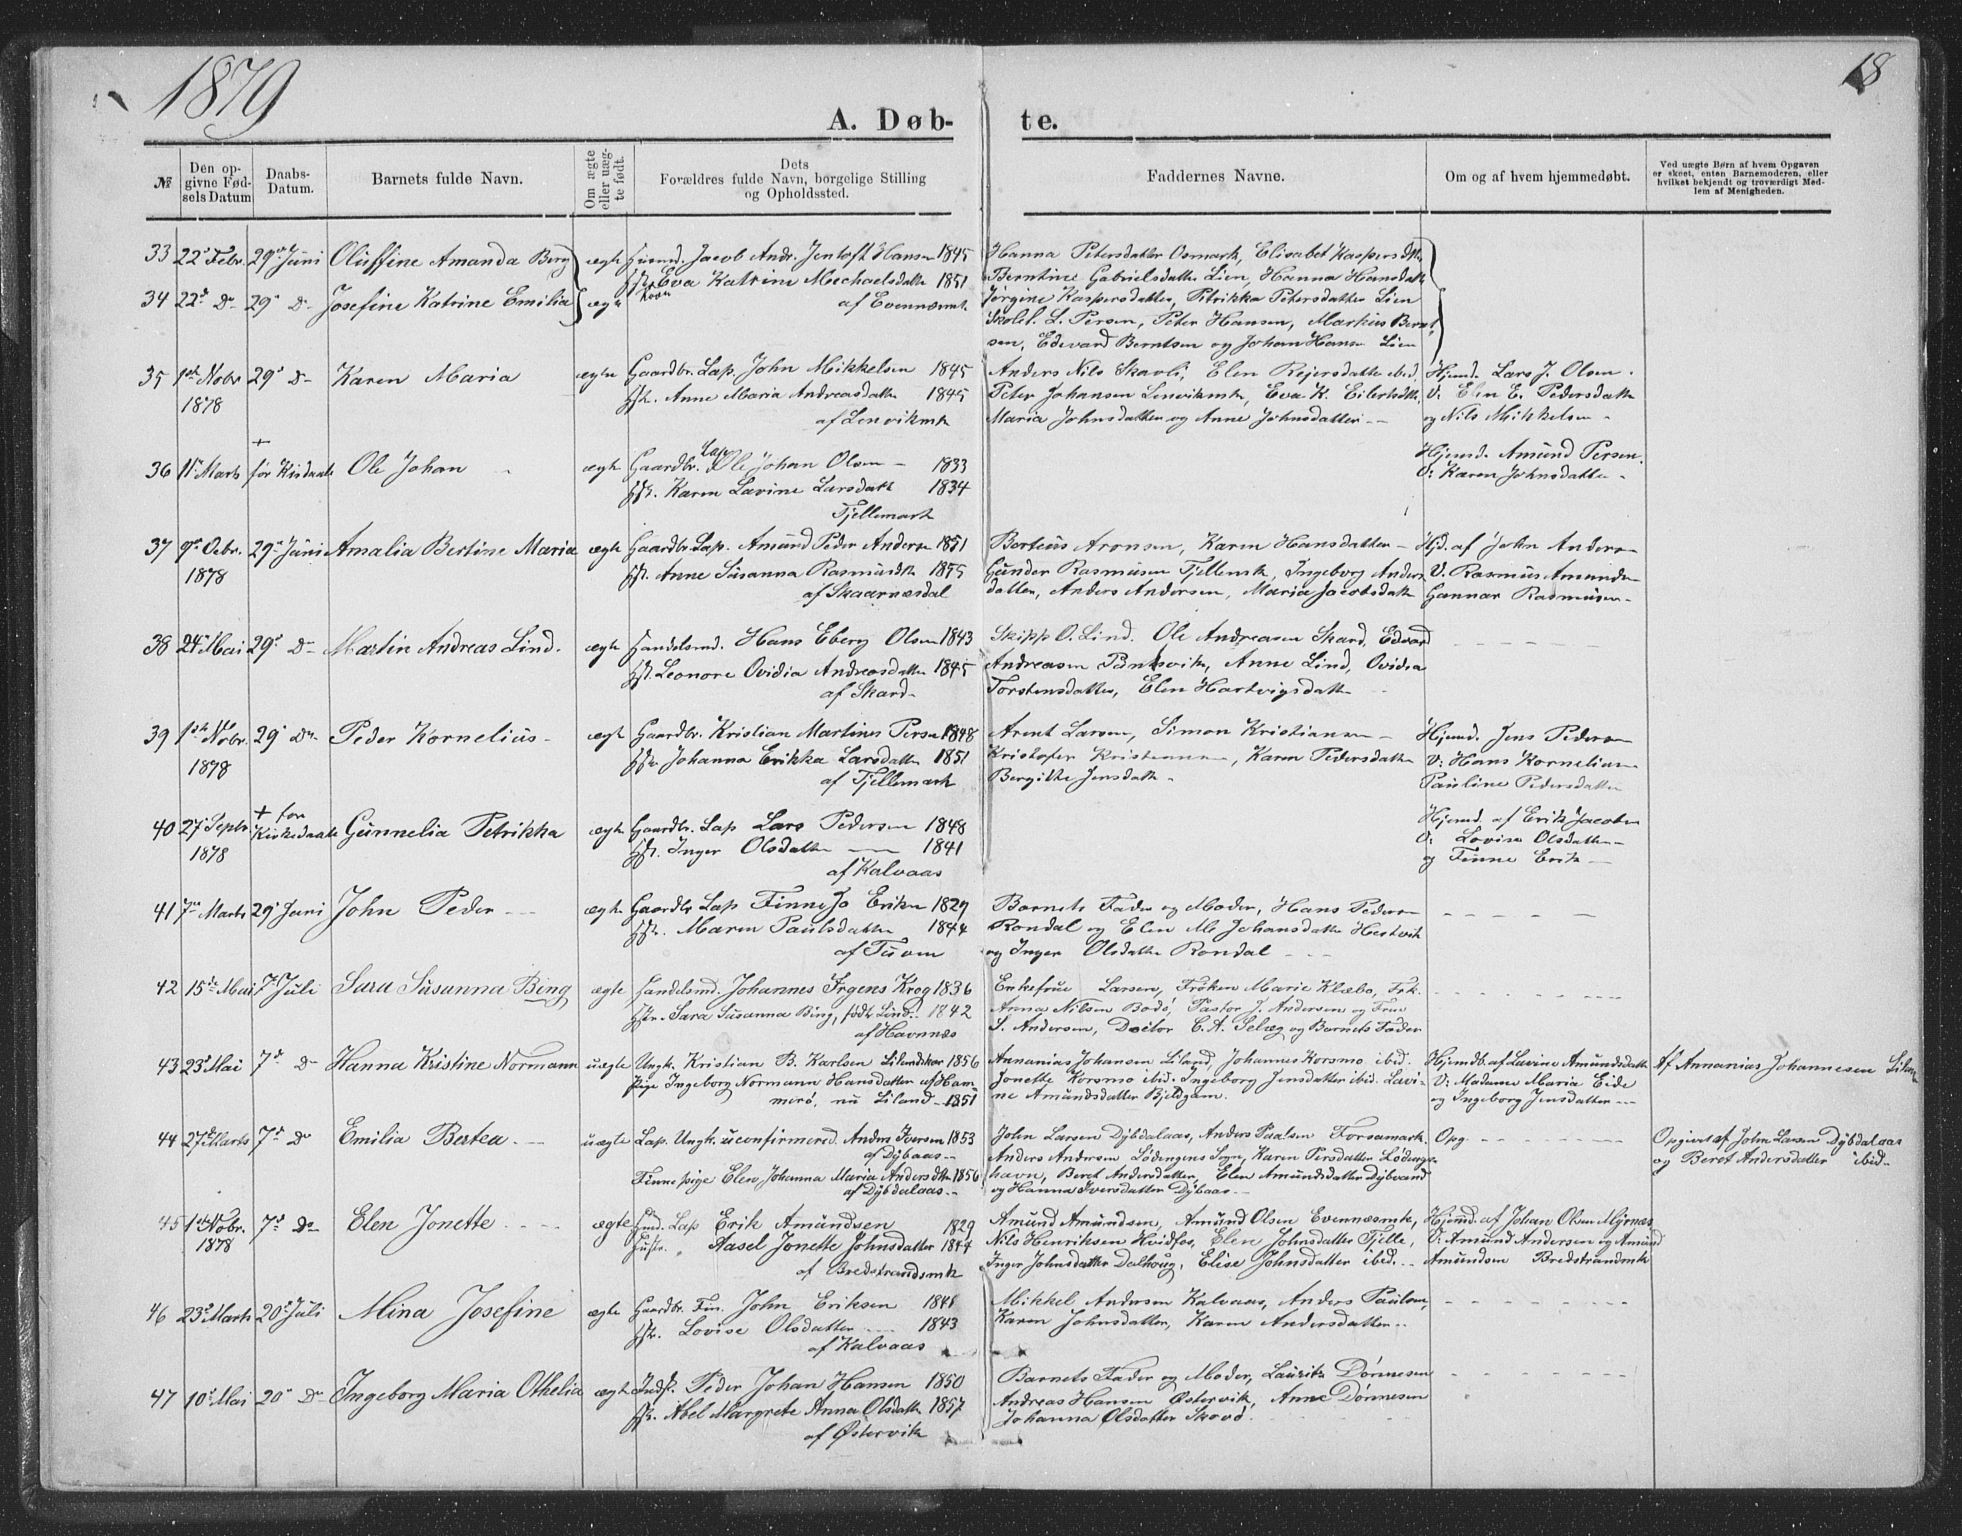 1879
18
A. Døb-
te.
№
Den opgivne Fødsels Datum
Daabs-Datum.
Barnets fulde Navn.
Om ægte eller uægte født.
Dets Forældres fulde Navn, borgelige Stilling og Opholdssted.
Faddernes Navne.
Om og af hvem hjemmedøbt.
Ved uægte Børn af hvem Opgaven er skeet, enten Barnemoderen, eller hvilket bekjendt og troværdigt Medlem af Menigheden.
33 22 Febr. 29 Juni Oluffine Amanda Berg ægte Jacob Andr. Jentoft Hansen 1845 Hanna Petersdatter Osmark, Elisabet Kaspersdtr
Eva Katrine Mechaelsdatter 1851 Berntine Gabrielsdatter Lien, Hanna Hansdatter
34 22 Do 29 Do Josefine Katrine Emilia ægte af Evennæsmk. Jørgine Kaspersdatter, Petrikka Petersdatter Lien
Skolel. L. Persen, Peter Hansen, Markus Bernt-
sen, Edevard Berntsen og Johan Hansen Lien
35 1 Nobr 29 Do Karen Maria ægte Gaardbr. Lap. John Mikkelsen 1845 Anders Nils Skavli, Elen Reiersdatter ibid, Hjemd. Lars J. Olsen.
1878 Hst. Anne Maria Andreasdatter 1845 Peter Johansen Lenvikmk, Eva K. Eilertsdtr. V. Elen E. Pedersdatter
af Lenvikmk Maria Johnsdatter og Anne Johnsdatter og Nils Mikkelsen
+ Hjemd. Amund Persen.
36 11 Marts før Kisdaab Ole Johan ægte Gaardbr. Lap Ole Johan Olsen 1833 V: Karen Johnsdatter
Hst. Karen Lavine Larsdatter 1834
Tjellemark
37 9 Ocbr. 29 Juni Amalia Bertine Maria ægte Gaardbr. Lap. Amund Peder Andersen 1851 Berteus Aronsen, Karen Hansdatter Hjd. af John Andersen
1878 Hst. Anne Susanna Rasmusdtr 1855 Gunder Rasmusen Tjellemk, Ingeborg Anders V. Rasmus Amundsen
af Skaarnæsdal datter, Anders Andersen, Maria Jacobsdatter Gunnar Rasmusen
38 24 Mai 29 Do Martin Andreas Lind. ægte Handelsmd. Hans Eberg Olsen 1843 Skipp O. Lind. Ole Andreasen Skard, Edvard
Hst. Leonore Ovidia Andreasdatter 1845 Andreasen, Anne Lind, Ovidia
af Skard Torstensdatter, Elen Hartvigsdatter
39 1 Nobr. 29 Do Peder Kornelius ægte Gaardbr. Kristian Martinus Persen 1848 Arent Larsen, Simon Kristiansen Hjemd. Jens Pedersen
1878 Hst. Johanna Erikka Larsdatter 1851 Kristofer Kristensen, Karen Pedersdatter V: Hans Kornelius
af Tjellemark Bergithe Jensdatter Pauline Pedersdatter
40 27 Septr + før Kirkedaab Gunnelia Petrikka ægte Gaardbr. Lap Lars Pedersen 1848 Hjemd. af Erik Jacobsen
1878 Hst. Inger Olsdatter 1841 V: Lovise Olsdatter
af Kalvaas og Finne Erik
41 7 Marts 29 Juni John Peder ægte Gaardbr Lap Finne Jo Eriksen 1829 Barnets Fader og Moder, Hans Pedersen
Hst. Maren Paulsdatter 1844 Rondal og Elen M. Johansdatter Hestvik
af og Inger Olsdatter Rondal
42 15 Mai 7 Juli Sara Susanna Bing ægte Handelsmd. Johannes Irgens Krog 1836 Enkefrue Larsen, Frøken Marie Klæbo, Frk.
Hst. Sara Susanna Bing, født Lind. 1842 Anna Nilsen Bodø, Pastor J. Andersen og Frue
af Havnnæs S. Andersen, Doctor C. A. Selæg og Barnets Fader
43 23 Mai 7 Do Hanna Kristine Normann uægte Ungk. Kristian B. Karlsen 1856 Annanias Johansen Liland, Johannes Korsmo ibid. Hjemdb. af Lavine Amundsdatter Af Annanias Johannesen Liland
Pige Ingeborg Normann Hansdatter af Ham- Jonette Korsmo ibid. Ingeborg Jensdatter ibid. Lavi- V: Madame Maria Eide
merø, nu Liland 1851 ne Amundsdatter Bjeldgam. og Ingeborg Jensdatter
44 27 Marts 7 Do Emilia Bertea. uægte Lap. Ungk. uconfirmered. Anders Iversen 1853 John Larsen Dybdalaas, Anders Paalsen Forsamark. Opg. Opgivet af John Larsen Dybdalaas
af Dybaas Anders Andersen Lødingens Sogn, Karen Persdatter Lødings- og Beret Andersdatter ibid.
Finne pige Elen Johanna Maria Andersdtr 1856 havn, Beret Andersdatter, Elen Amundsdatter Dybvand
af Dybdalaas og Hanna Iversdatter Dybaas
45 1 Nobr. 7 Do Elen Jonette ægte Hmd. Lap Erik Amundsen 1829 Amund Amundsen, Amund Olsen Evennæsmk, Hjemd. af Johan Olsen Myrnes
1878 Hustr. Aasel Jonette Johnsdatter 1844 Nils Henriksen Hvidfos, Elen Johnsdatter Tjelle, V: Amund Andersen og Amund
af Bredstrandsmk Inger Johnsdatter Dalhoug, Elise Johnsdatter ibid. Amundsen Bredstrandmk
46 23 Marts 20 Juli Mina Josefine ægte Gaardbr. Fin. John Eriksen 1841 Mikkel Andersen Kalvaas, Anders Paulsen,
Hst. Lovise Olsdatter 1843 Karen Johnsdatter, Karen Andersdatter
af Kalvaas
47 10 Mai 20 Do Ingeborg Maria Othelia ægte Indst. Peder Johan Hansen 1850 Barnets Fader og Moder, Lauritz Dønnesen
Hst. Abel Margrete Anna Olsdatter 1857 Andreas Hansen Østervik, Anne Dønnesen
af Østervik Johanna Olsdatter Skovd.